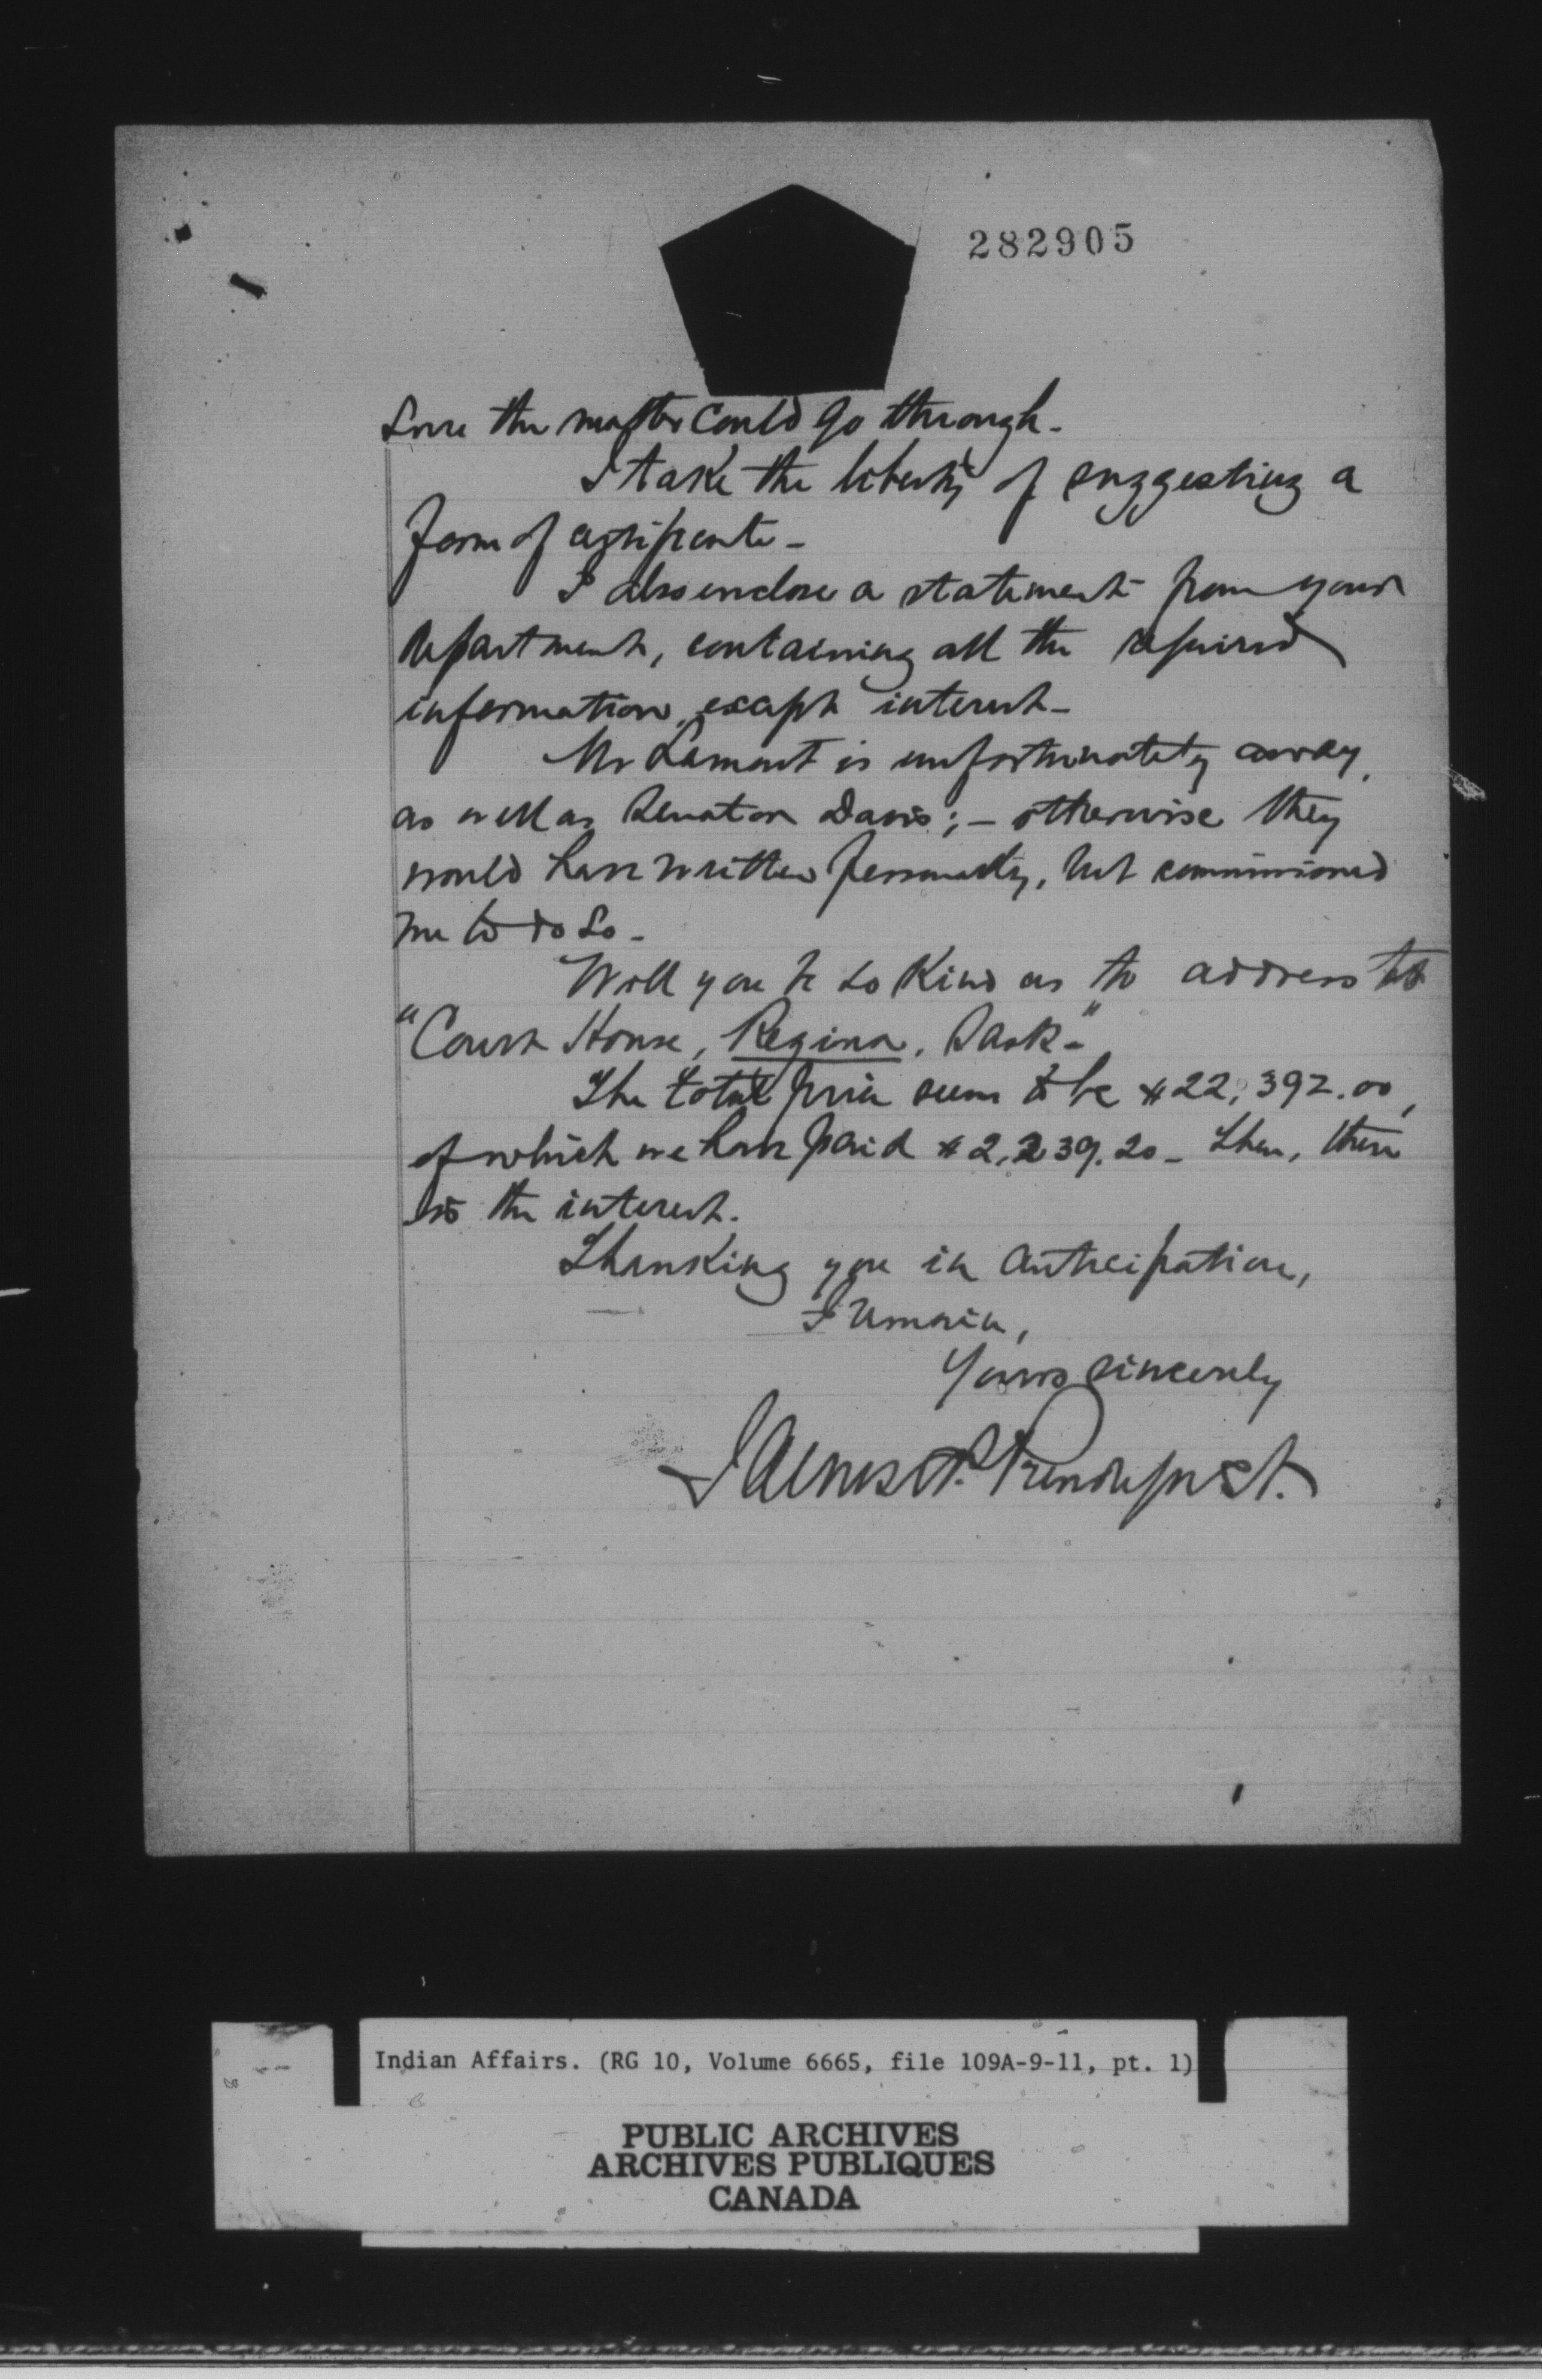 282905
sure the matter could go through -
I take the liberty of suggesting a
form of certificate -
I also enclose a statement from your
Department, containing all the required
information, except interest -
Mr Lamont is unfortunately away,
as well as Senator Davis; - otherwise they
would have written personally, but commissioned
me to do so -
Will you be so kind as to address to
"Court House, Regina, Sask -"
The total price seems to be $22,392.00,
of which we have paid $2,239.20 - Then, there
is the interest.
Thanking you in anticipation,
I remain,
Yours sincerely
James P. Prendergast.
Indian Affairs. (RG 10, Volume 6665, file 109A-9-11, pt. 1)
PUBLIC ARCHIVES
ARCHIVES PUBLIQUES
CANADA